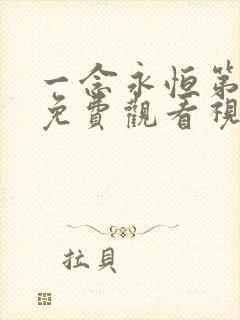 一念永恒第
免費觀看視
拉貝